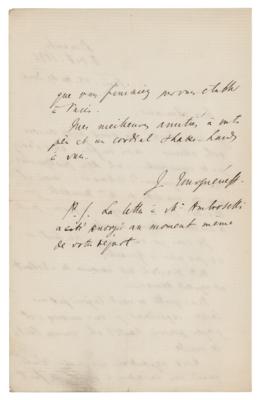 que vous finirez par vous établir
à Paris.
Mes meilleures amitiés, à votre
père et un cordial shake-hands
à vous.
J. Tourguéneff.
P. S. La lettre à Mr Ambrosetti
a été envoyée au moment même
de votre départ